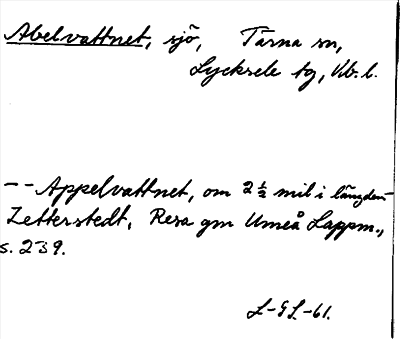 Abelvattnet, sjö, Tärna sn,
Lycksele tg, Vb. l.
-- Appelvattnet, om 2 1/2 mil i längden -
Zetterstedt, Resa gm Umeå Lappm.,
s. 239.
L-GL.-61.